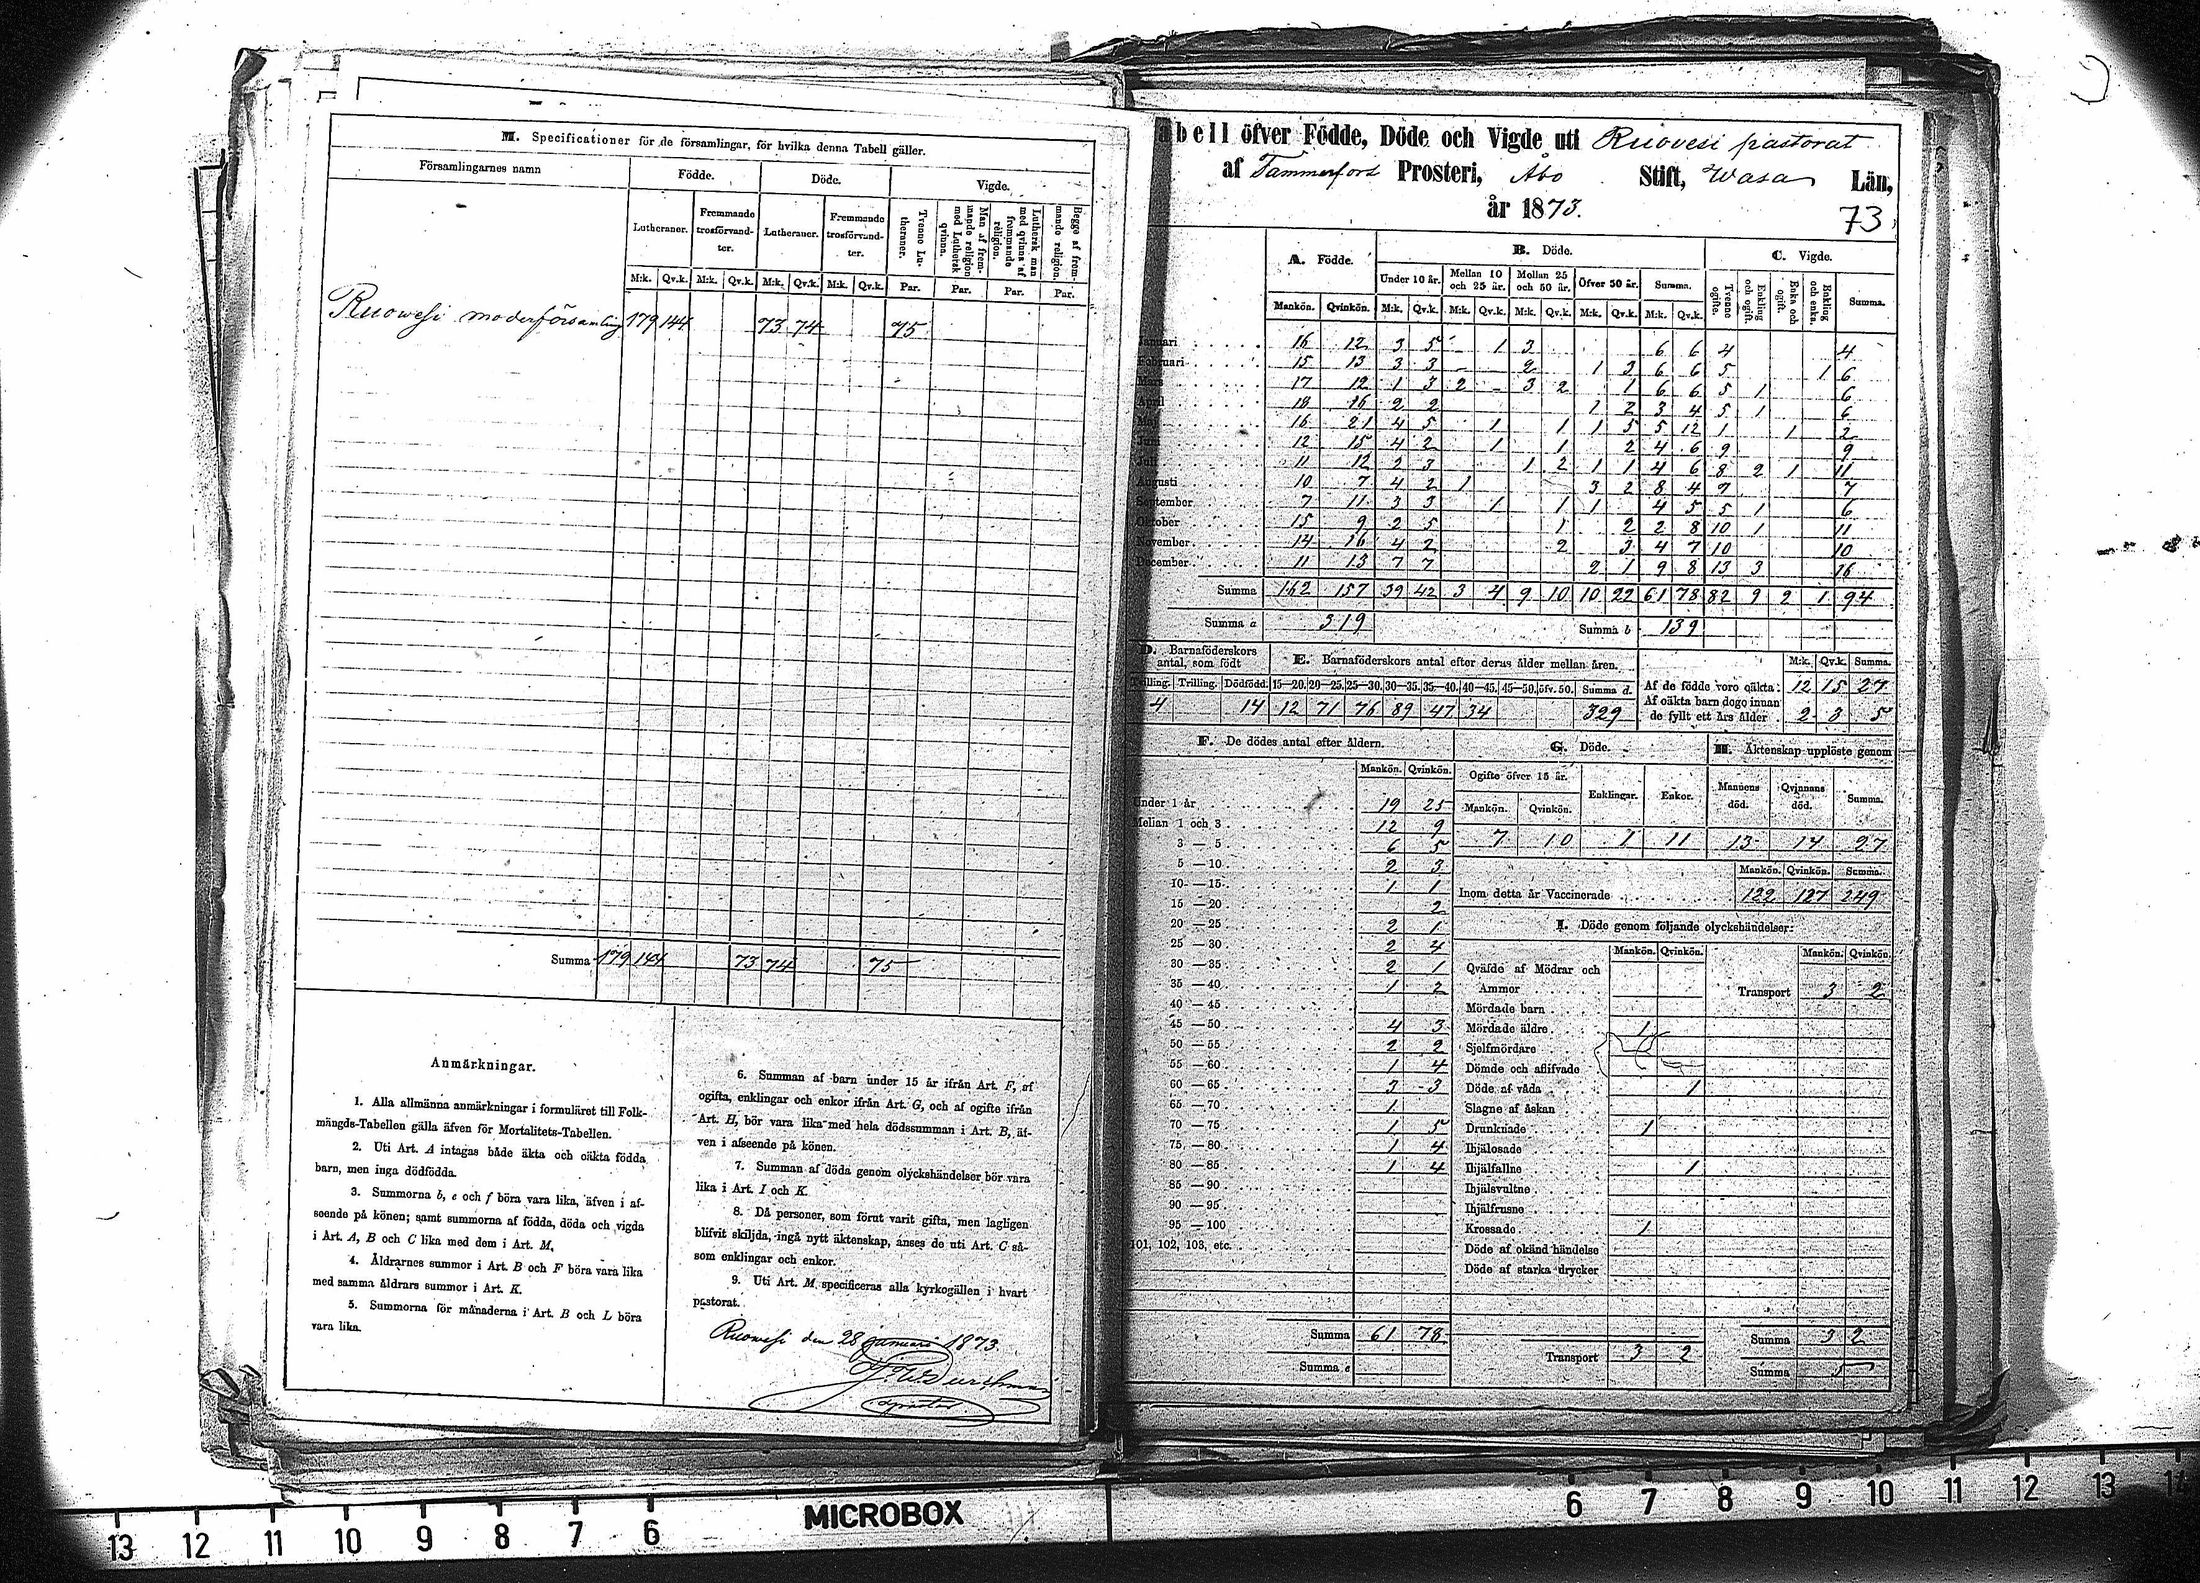 M. Specificationer för de församlingar, för hvilka denna Tabell gäller.
Församlingarnes namn Födde. Döde. Vigde.
Lutheraner. Fremmande trosförvandter. Lutheraner. Fremmande trosförvandter. Tvenne Lutheraner. Man af fremmande religion med Luthersk qvinna. Luthersk man med qvinna af fremmande religion. Begge af fremmande religion.
M:k. Qv.k. M:k. Qv.k. M:k. Qv.k. M:k. Qv.k. Par. Par. Par. Par.
Ruowesi moderförsamling 179 144 73 74 75
Summa 179 144 73 74 75
Anmärkningar.
1. Alla allmänna anmärkningar i formuläret till Folk-
mängds-Tabellen gälla äfven för Mortalitets-Tabellen.
2. Uti Art. A intagas både äkta och oäkta födda
barn, men inga dödfödda.
3. Summorna b, e och f böra vara lika, äfven i af-
seende på könen; samt summorna af födda, döda och vigda
i Art. A, B och C lika med dem i Art. M.
4. Åldrarnes summor i Art. B och F böra vara lika
med samma åldrars summor i Art. K.
5. Summorna för månaderna i Art. B och L böra
vara lika.
6. Summan af barn under 15 år ifrån Art. F, af
ogifta, enklingar och enkor ifrån Art. G, och af ogifte ifrån
Art. H, bör vara lika med hela dödssumman i Art. B, äf-
ven i afseende på könen.
7. Summan af döda genom olyckshändelser bör vara
lika i Art. I och K.
8. Då personer, som förut varit gifta, men lagligen
blifvit skiljda, ingå nytt äktenskap, anses de uti Art. C så-
som enklingar och enkor.
9. Uti Art. M specificeras alla kyrkogällen i hvart
pastorat.
Ruowesi den 28 Januari 1873.
abell öfver Födde, Döde och Vigde uti Ruovesi pastorat
af Tammerfors Prosteri, Åbo Stift, Wasa Län,
år 1873.
73
A. Födde. B. Döde. C. Vigde.
Under 10 år. Mellan 10 och 25 år. Mellan 25 och 50 år. Öfver 50 år. Summa. Tvenne ogifte. Enkling och ogift. Enka och ogift. Enkling och enka. Summa.
Mankön. Qvinkön. M:k. Qv.k. M:k. Qv.k. M:k. Qv.k. M:k. Qv.k. M:k. Qv.k.
Januari 16 12 3 5 - 1 3 6 6 4 4
Februari 15 13 3 3 - 2 1 3 6 6 5 1 6
Mars 17 12 1 3 2 - 3 2 1 6 6 5 1 6
April 18 16 2 2 1 2 3 4 5 1 6
Maj 16 21 4 5 1 1 1 5 5 12 1 1 2
Juni 12 15 4 2 1 1 2 4 6 9 9
Juli 11 12 2 3 1 2 1 1 4 6 8 2 1 11
Augusti 10 7 4 2 1 3 2 8 4 7 7
September 7 11 3 3 1 1 1 4 5 5 1 6
Oktober 15 9 2 5 1 2 2 8 10 1 11
November 14 16 4 2 2 3 4 7 10 10
December 11 13 7 7 2 1 9 8 13 3 16
Summa 162 157 39 42 3 4 9 10 10 22 61 78 82 9 2 1 94
Summa a 319 Summa b 139
D. Barnaföderskors antal, som födt E. Barnaföderskors antal efter deras ålder mellan åren. M:k. Qv.k. Summa.
Tvilling. Trilling. Dödfödd. 15—20. 20—25. 25—30. 30—35. 35—40. 40—45. 45—50. öfv. 50. Summa d.
4 14 12 71 76 89 47 34 329
Af de födde voro oäkta 12 15 27
Af oäkta barn dogo innan
de fyllt ett års ålder 2 3 5
F. De dödes antal efter åldern.
Mankön. Qvinkön.
Under 1 år 19 25
Mellan 1 och 3 12 9
3 — 5 6 5
5 — 10 2 3
10 — 15 1 1
15 — 20 2
20 — 25 2 1
25 — 30 2 4
30 — 35 2 1
35 — 40 1 2
40 — 45
45 — 50 4 3
50 — 55 2 2
55 — 60 1 4
60 — 65 3 3
65 — 70 1
70 — 75 1 5
75 — 80 1 4
80 — 85 1 4
85 — 90
90 — 95
95 — 100
101, 102, 103, etc.
Summa 61 78
Summa e
G. Döde.
Ogifte öfver 15 år. Enklingar. Enkor.
Mankön. Qvinkön.
7 10 1 11
H. Äktenskap upplöste genom
Mannens död. Qvinnans död. Summa.
13 14 27
Mankön. Qvinkön. Summa.
Inom detta år Vaccinerade 122 127 249
I. Döde genom följande olyckshändelser:
Mankön. Qvinkön. Mankön. Qvinkön.
Qväfde af Mödrar och
Ammor
Transport 3 2
Mördade barn
Mördade äldre 1
Sjelfmördare
Dömde och aflifvade
Döde af våda 1
Slagne af åskan
Drunknade 1
Ihjälosade
Ihjälfallne 1
Ihjälsvultne
Ihjälfrusne
Krossade 1
Döde af okänd händelse
Döde af starka drycker
Transport 3 2
Summa 3 2
Summa 5
13 12 11 10 9 8 7 6 MICROBOX 6 7 8 9 10 11 12 13 14